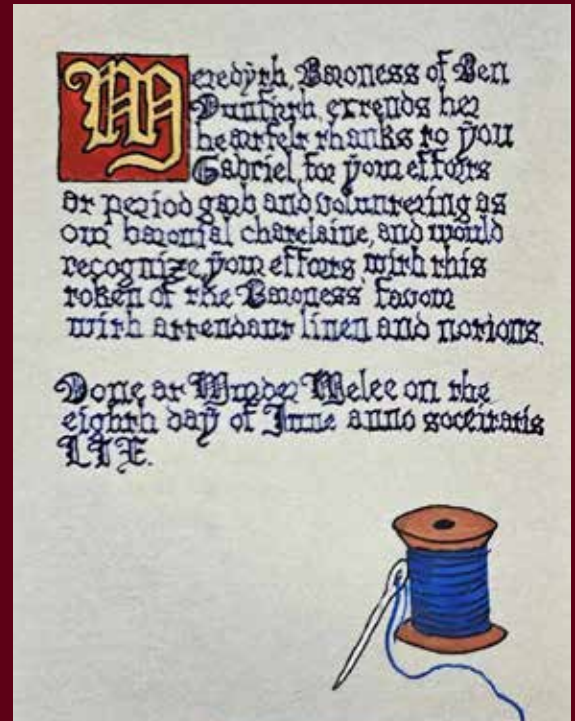 Meredyth, Baroness of Ben
Dunfirth, extends her
heartfelt thanks to you
Gabriel, for your efforts
at period garb and volunteering as
our baronial chatelaine, and would
recognize your efforts with this
token of the Baroness' favour
with attendant linen and notions.
Done at Murder Melee on the
eighth day of June anno soceitatis
LIX.